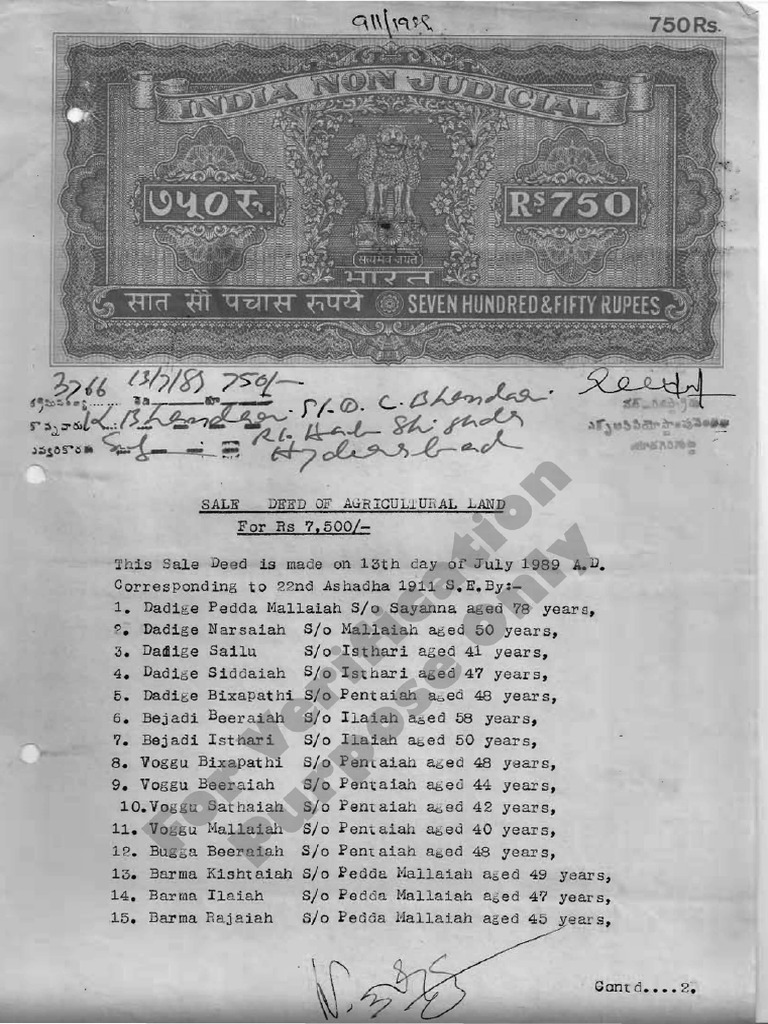 911/1989
750 Rs.
INDIA NON JUDICIAL
७५० रु.
Rs 750
सत्यमेव जयते
भारत
सात सौ पचास रुपये
SEVEN HUNDRED & FIFTY RUPEES
3766 13/7/89 750/-
K Bhandari S/o. C. Bhandari
Self
Hyderabad
SALE DEED OF AGRICULTURAL LAND
For Rs 7,500/-
This Sale Deed is made on 13th day of July 1989 A.D.
Corresponding to 22nd Ashadha 1911 S.E.By:-
1. Dadige Pedda Mallaiah S/o Sayanna aged 78 years,
2. Dadige Narsaiah S/o Mallaiah aged 50 years,
3. Dadige Sailu S/o Isthari aged 41 years,
4. Dadige Siddaiah S/o Isthari aged 47 years,
5. Dadige Bixapathi S/o Pentaiah aged 48 years,
6. Bejadi Beeraiah S/o Ilaiah aged 58 years,
7. Bejadi Isthari S/o Ilaiah aged 50 years,
8. Voggu Bixapathi S/o Pentaiah aged 48 years,
9. Voggu Beeraiah S/o Pentaiah aged 44 years,
10. Voggu Sathaiah S/o Pentaiah aged 42 years,
11. Voggu Mallaiah S/o Pentaiah aged 40 years,
12. Bugga Beeraiah S/o Pentaiah aged 48 years,
13. Barma Kishtaiah S/o Pedda Mallaiah aged 49 years,
14. Barma Ilaiah S/o Pedda Mallaiah aged 47 years,
15. Barma Rajaiah S/o Pedda Mallaiah aged 45 years,
Contd....2.
For verification
purpose only